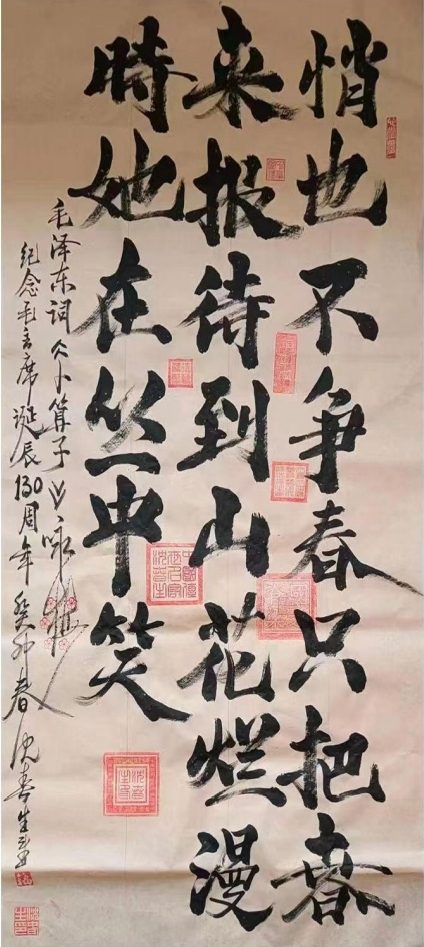 悄也不争春只把春
来报待到山花烂漫
時她在丛中笑
毛泽东词卜算子咏梅
纪念毛主席诞辰130周年癸卯春沈春生书